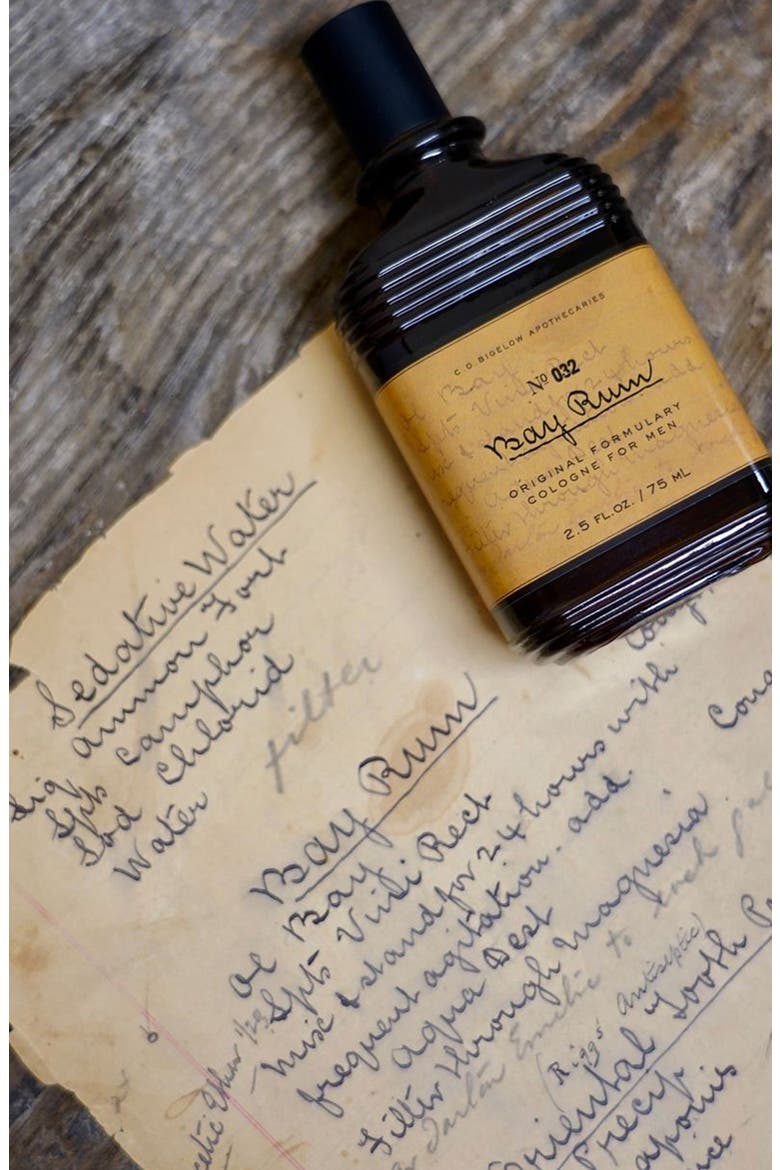 C.O. BIGELOW APOTHECARIES
Nº 032
Bay Rum
ORIGINAL FORMULARY
COLOGNE FOR MEN
2.5 FL.OZ. / 75 ML
Sedative Water
Ammon Fort
Spts Camphor
Sod Chlorid
Water
filter
Bay Rum
Ol Bay
Spts Vini Rect
Mix & stand for 24 hours with
frequent agitation. add.
Aqua Dest
Filter through Magnesia
Tartar Emetic to each
(Riggs Antiseptic)
Oriental Tooth
Precip